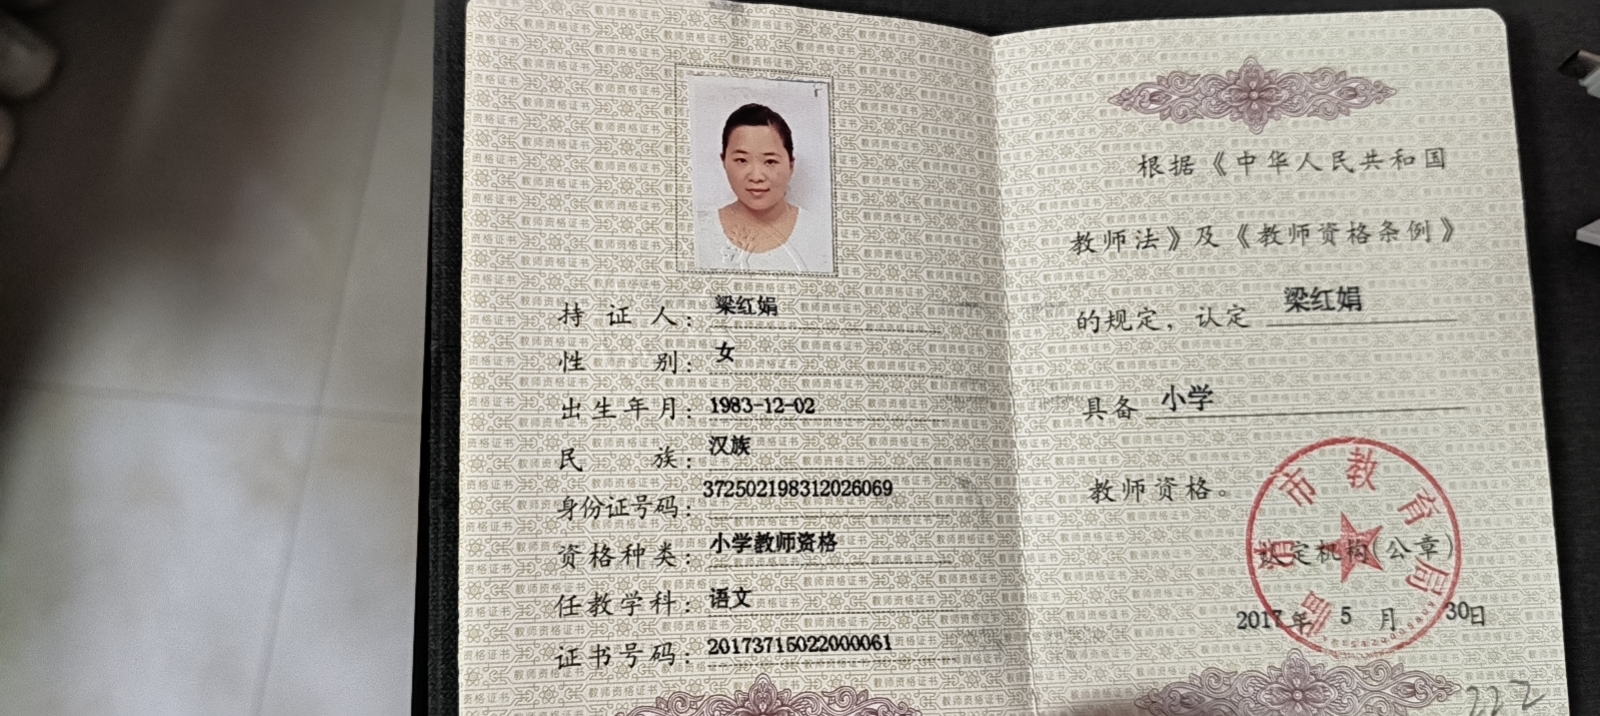 持证人：梁红娟
性别：女
出生年月：1983-12-02
民族：汉族
身份证号码：372502198312026069
资格种类：小学教师资格
任教学科：语文
证书号码：20173715022000061
根据《中华人民共和国
教师法》及《教师资格条例》
的规定，认定 梁红娟
具备 小学
教师资格。
认定机构(公章)
市教育局
2017年 5 月 30日
222